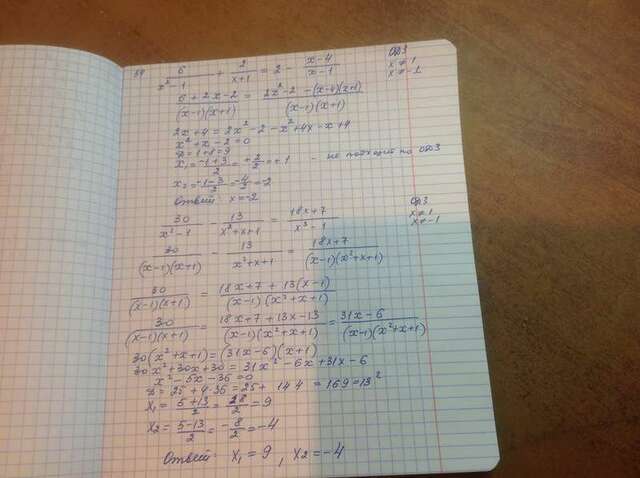 6/(x²-1) + 2/(x+1) = 2 - (x-4)/(x-1)
ОДЗ
x≠1
x≠-1
(6+2x-2)/((x-1)(x+1)) = (2x²-2-(x-4)(x+1))/((x-1)(x+1))
2x+4=2x²-2-x²+4x-x+4
x²+x-2=0
x₁=(-1+3)/2=+2/2=+1 - не подходит по ОДЗ
x₂=(-1-3)/2=-4/2=-2
Ответ x=-2
30/(x²-1) - 13/(x²+x+1) = (18x+7)/(x³-1)
ОДЗ
x≠1
x≠-1
30/((x-1)(x+1)) - 13/(x²+x+1) = (18x+7)/((x-1)(x²+x+1))
30/((x-1)(x+1)) = (18x+7+13(x-1))/((x-1)(x²+x+1))
30/((x-1)(x+1)) = (18x+7+13x-13)/((x-1)(x²+x+1)) = (31x-6)/((x-1)(x²+x+1))
30(x²+x+1)=(31x-6)(x+1)
30x²+30x+30=31x²-6x+31x-6
x²-5x-36=0
D=25+4·36=25+144=169=13²
x₁=(5+13)/2=18/2=9
x₂=(5-13)/2=-8/2=-4
Ответ: x₁=9, x₂=-4